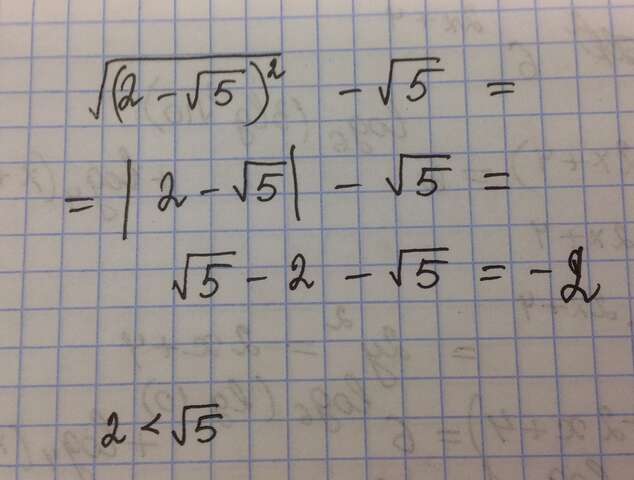 √(2 - √5)² - √5 =
= |2 - √5| - √5 =
√5 - 2 - √5 = -2
2 < √5